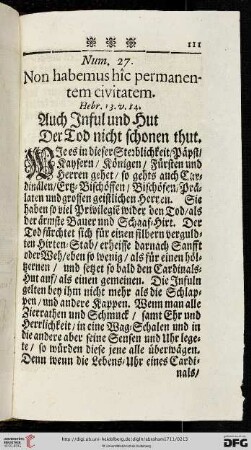 111
Num. 27.
Non habemus hic permanen-
tem civitatem.
Hebr. 13. v. 14.
Auch Inful und Hut
Der Tod nicht schonen thut.
WIe es in dieser Sterblichkeit/Päpst/
Kaysern/ Königen/ Fürsten und
Herren gehet/ so gehts auch Car-
dinälen/Ertz-Bischöffen/ Bischöfen/Präs
laten und grossen geistlichen Herren. Sie
haben so viel Privilegia wider den Tod/als
der ärmste Bauer und Schaaf-Hirt. Der
Tod fürchtet sich für einen silbern vergul-
ten Hirten-Stab/ er heisse darnach Sanfft
oder Weh/eben so wenig/ als für einen höl-
tzernen/ und setzet so bald den Cardinals-
Hut auf/ als einen gemeinen. Die Infuln
gelten bey ihm nicht mehr als die Schlap-
pen/ und andere Kappen. Wenn man alle
Zierrathen und Schmuck/ samt Ehr und
Herrlichkeit/ in eine Wag-Schalen und in
die andere aber seine Sensen und Uhr lege-
te/ so würden diese jene alle überwägen.
Denn wenn die Lebens-Uhr eines Cardi-
nals/